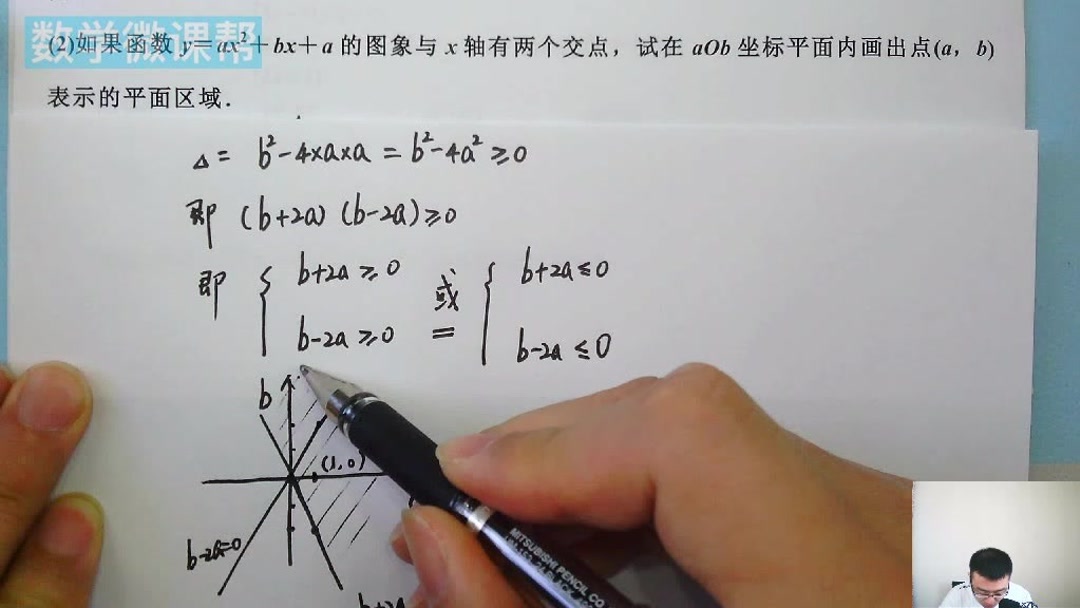 数学微课帮
(2)如果函数 y=ax²+bx+a 的图象与 x 轴有两个交点，试在 aOb 坐标平面内画出点(a，b)
表示的平面区域．
△= b²-4×a×a = b²-4a² ≥0
即 (b+2a) (b-2a) ≥0
即 { b+2a ≥0 或 { b+2a ≤0
b-2a ≥0 = b-2a ≤0
b
(1,0)
b-2a=0
MITSUBISHI PENCIL CO.